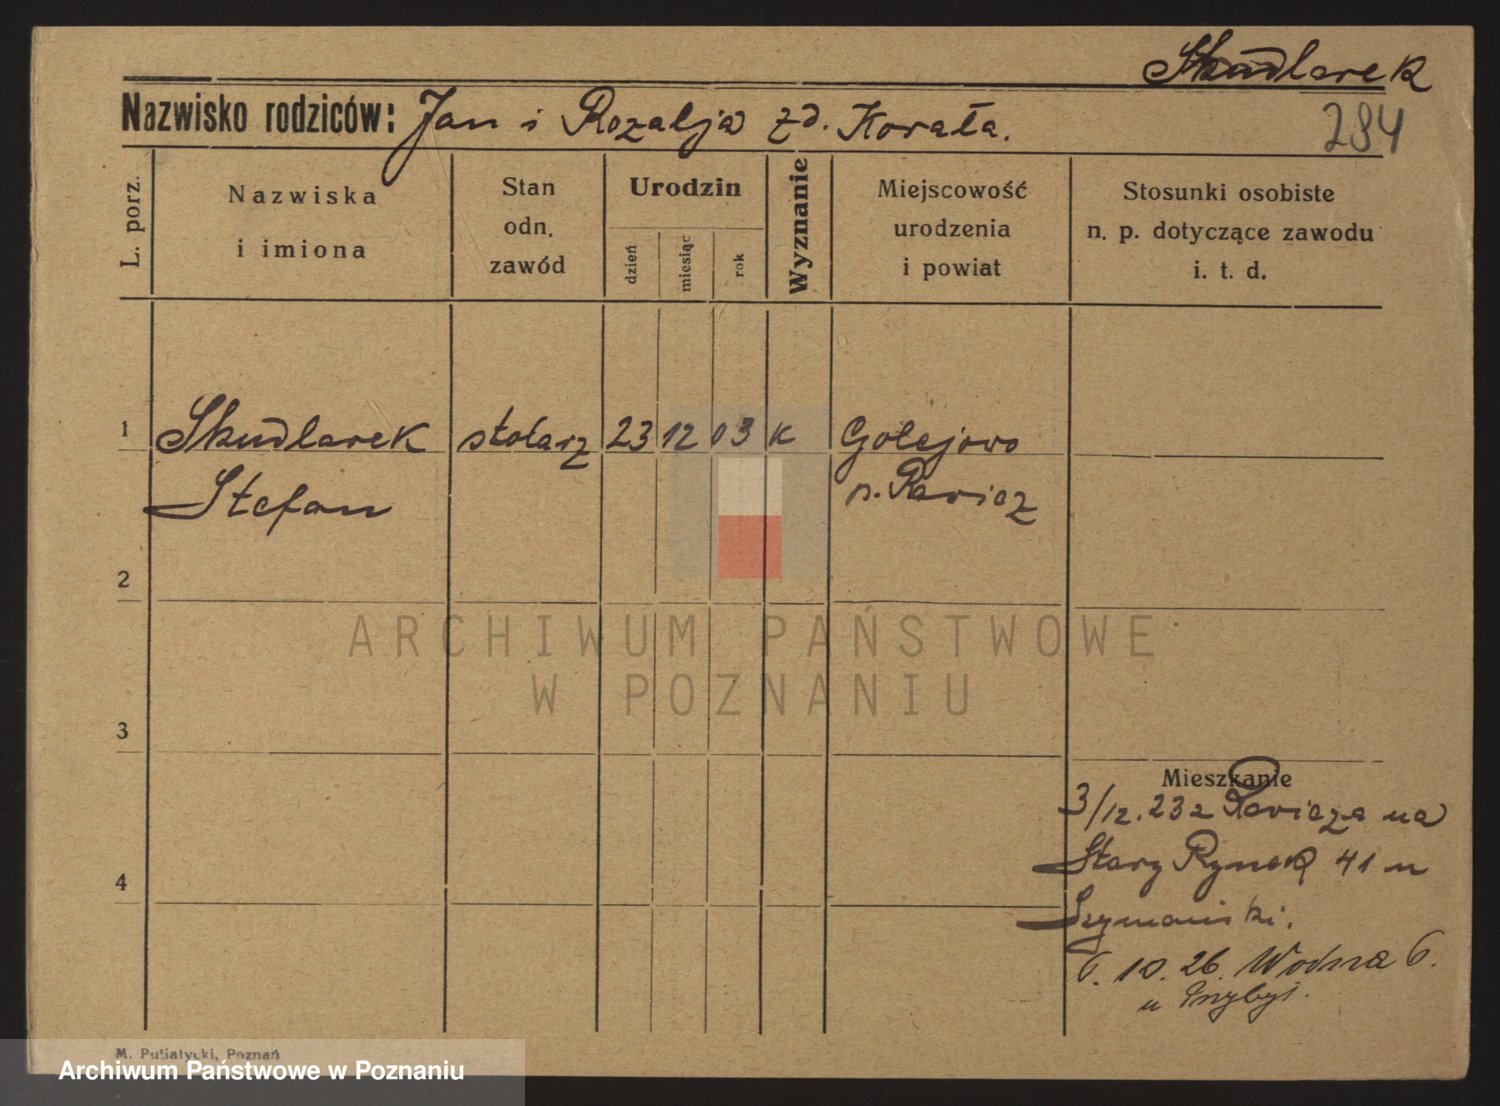 Skudlarek
Nazwisko rodziców: Jan i Rozalja zd. Korała.
284
L. porz.
Nazwiska
i imiona
Stan
odn.
zawód
Urodzin
dzień
miesiąc
rok
Wyznanie
Miejscowość
urodzenia
i powiat
Stosunki osobiste
n. p. dotyczące zawodu
i. t. d.
1 Skudlarek stolarz 23 12 03 K Golejowo
Stefan p. Rawicz
2
ARCHIWUM PAŃSTWOWE
W POZNANIU
3
Mieszkanie
3/12.23 z Rawicza na
4
Stary Rynek 41 u
Szymański.
6. 10. 26. Wodna 6.
u
M. Putiatycki, Poznań
Archiwum Państwowe w Poznaniu